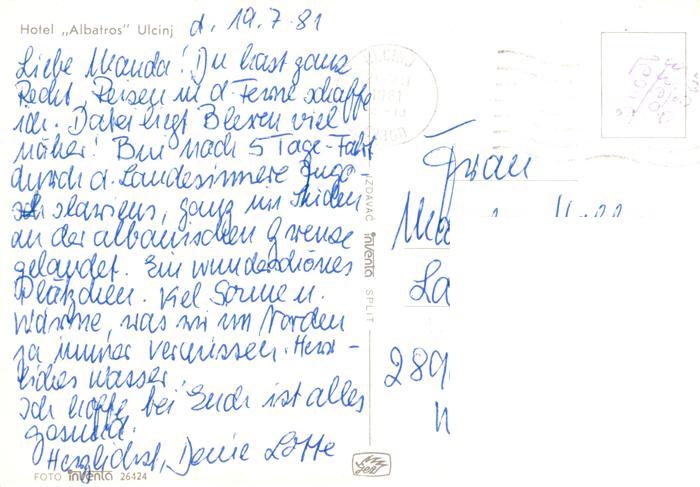 Hotel „Albatros" Ulcinj d. 19.7.81
Liebe Wanda! Du hast ganz
Recht, Reisen in d. Ferne schaffe
ich. Dabei liegt Bleven viel
näher! Bin nach 5 Tage-Fahrt
durch d. Landesinnere Jugo-
slawiens, ganz im Süden
an der albanischen Grenze
gelandet. Ein wunderschönes
Plätzchen. Viel Sonne u.
Wärme, was wir im Norden
ja immer vermissen. Herr-
liches Wasser!
Ich hoffe bei Euch ist alles
gesund.
Herzlichst, Deine Lotte
FOTO inventa 26424
IZDAVAČ inventa SPLIT
Frau
La